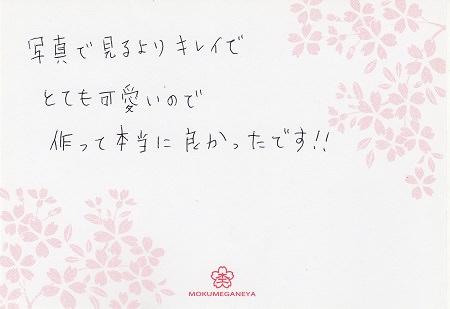 写真で見るよりキレイで
とても可愛いので
作って本当に良かったです!!
MOKUMEGANEYA